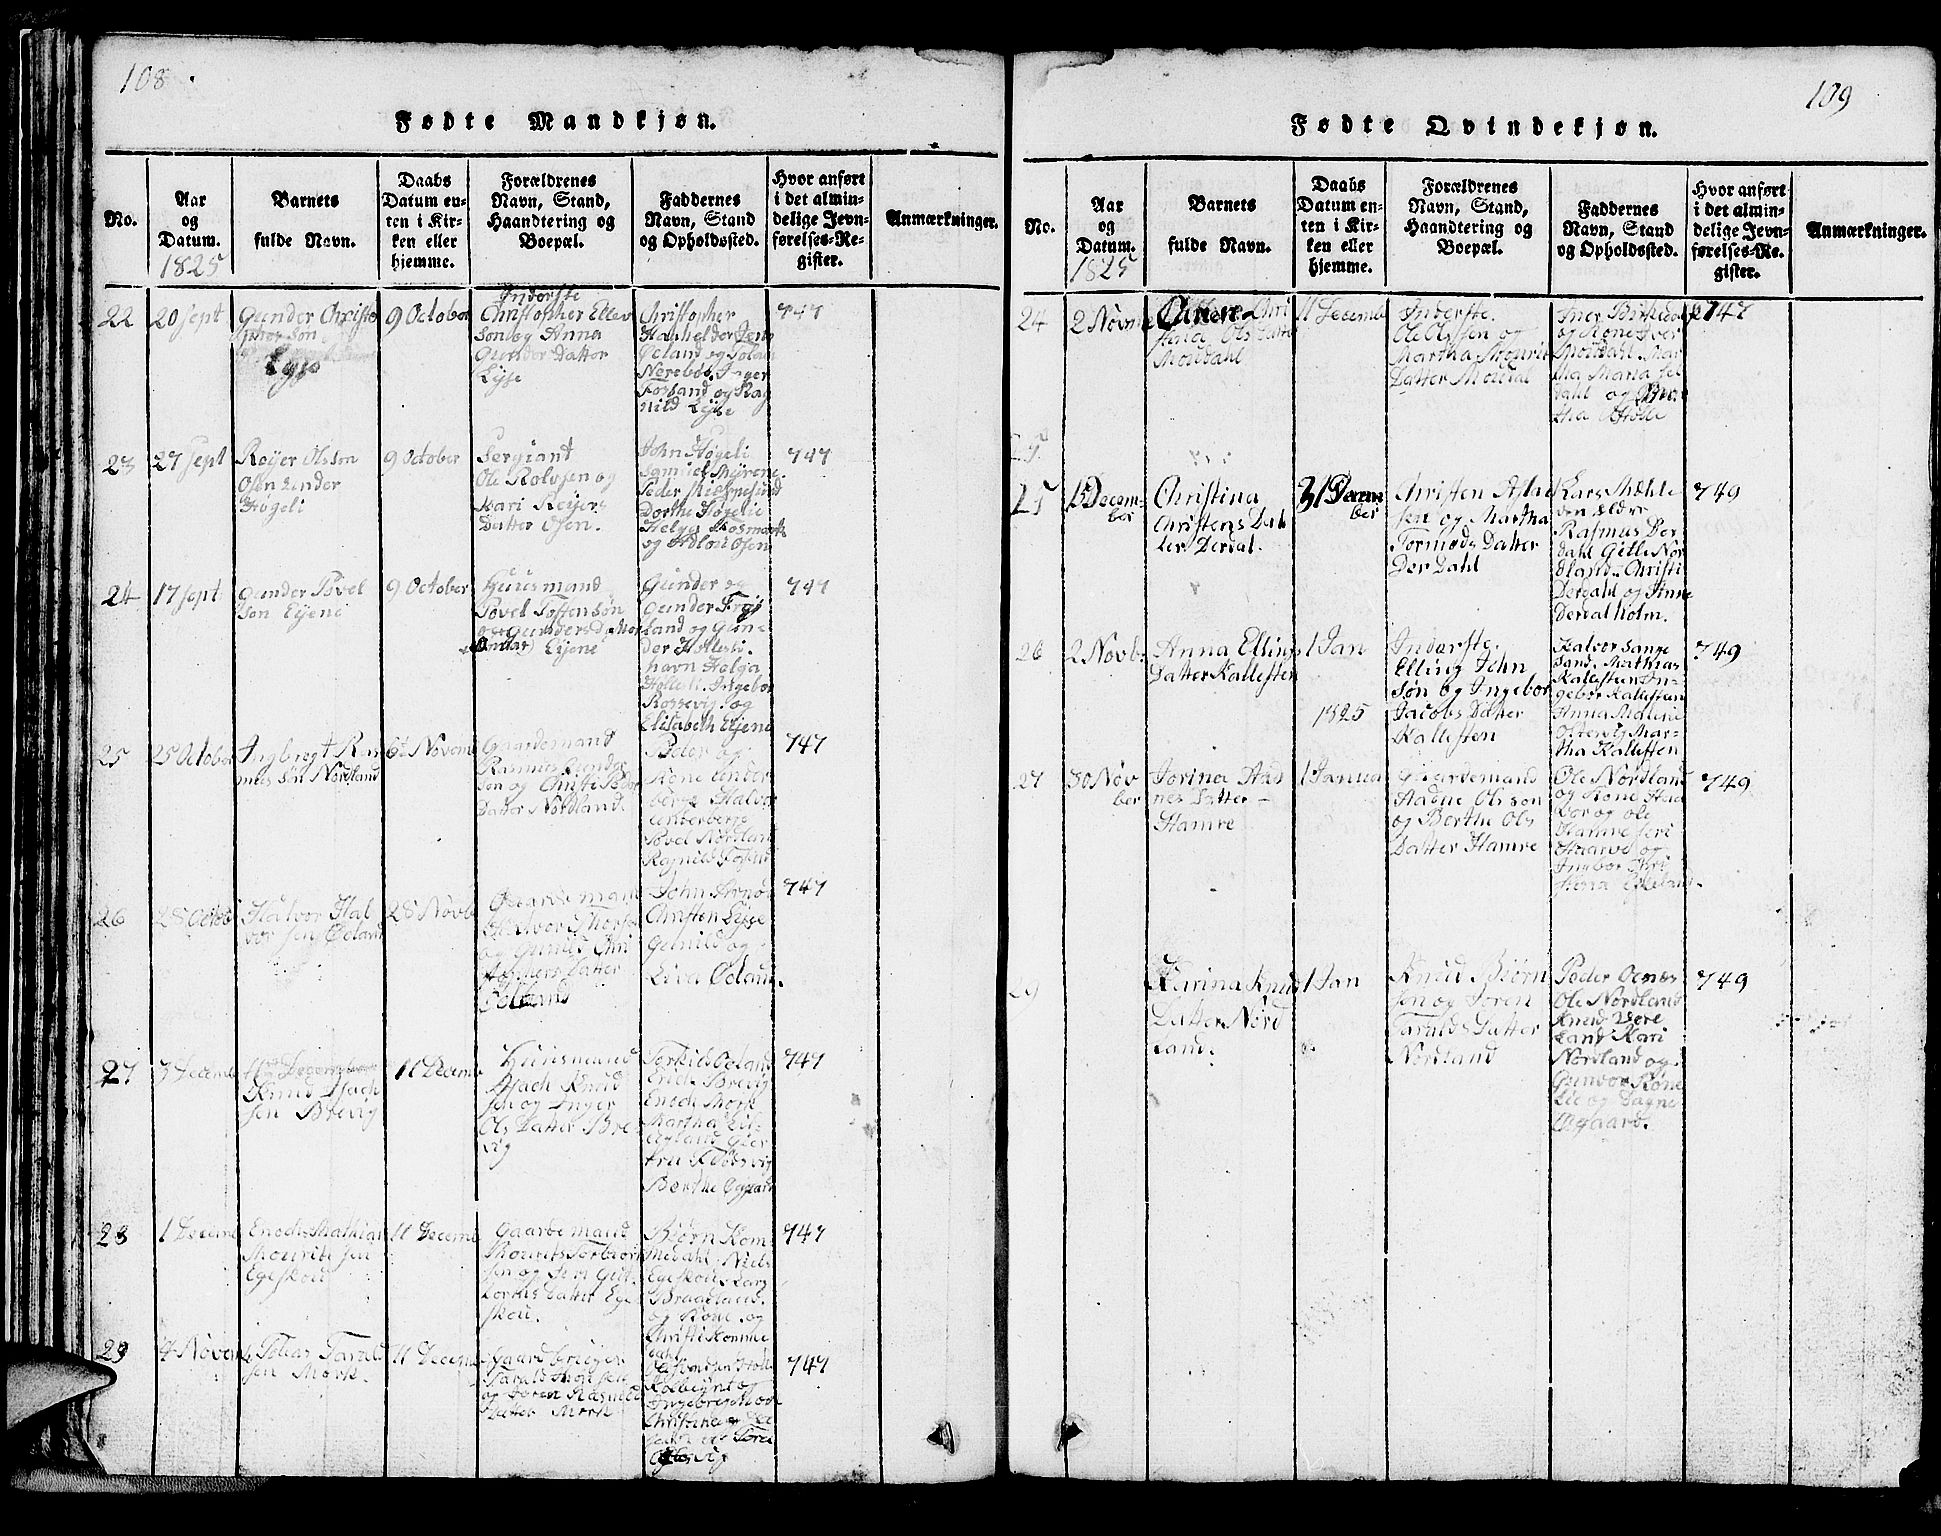 108
Fødte Mandkjøn.
No.
Aar
og
Datum.
1825
Barnets
fulde Navn.
Daabs
Datum en-
ten i Kir-
ken eller
hjemme.
Forældrenes
Navn, Stand,
Haandtering og
Boepæl.
Faddernes
Navn, Stand
og Opholdssted.
Hvor anført
i det almin-
delige Jevn-
førelses-Re-
gister.
Anmærkninger.
22
20 Sept
Gunder Christo
pher søn
Lyse
9 October
Inderste
Christopher Ellev
Søn og Anna
Gunders Datter
Lyse
Christopher
Øeland og
Nerebøe. Inger
Forsand og Rag
nild Lyse
747
23
27 Sept
Reijer Olsson
Osen under
Høgeli
9 October
Sergiant
Ole Rolvsen og
Kari Reijers
Datter Osen.
John Høgeli
Samuel Myrene
Peder
Dorthe Høgelie
Helga Kosmark
og Osen
747
24
17 Sept
Gunder Povel
Søn Eijene
9 October
Huusmand
Povel Toftensøn
og Gundersdatter
Eijene
Gunder og
Gunder Frøy
land og Gun-
der Holleli.
navn Helga
Holleli. Ingebor
Rossevig. og
Elisabeth Eijene
747
25
25 October
Ingbregt Ras
mus søn Nordland
6t Novemb
Gaardemand
Rasmus Gunder
Søn og Christi Peder
Datter Nordland.
Peder og
Kone Under
berge Halvor
Underberge
Povel Nordland
Ragnild
747
26
28 Octob
Halvor Hal
vor sen Øeland
28 Novb
Gaardemand
Halvor Thors
og Gunild Chri
stophers Datter
Øeland
John Arnø
Christen Lyse
Gunild og
Liva Øeland.
747
27
3 Decemb
11te December
Knud Isach
sen Brevig
11 Decemb
Huusmand
Isach Knud
sen og Inger
Ols Datter Bre
vig
Torkild Øeland
Erich Brevig
Enoch Mork
Martha Lil-
Gier
trud
Berthe Øygaard
747
28
1 Decemb
Enoch Mathias
Mourits sen
Egeskou
11 Decemb
Gaardemand
Mourits Torbiørn
sen og Siri Gut
torms Datter Ege
skou.
Biørn Kom
medahl. Niels
Egeskou. Lars
Braadland.
og Kone. og
Christi Komme
dahl
747
29
4 Novemb
Tobias Tarald
sen Mork.
11 Decemb
Gaardbruger
Tarald
og Søren Rasmus
Datter Mork
og
Christine
747
109
Fødte Qvindekjøn.
No.
Aar
og
Datum.
1825
Barnets
fulde Navn.
Daabs
Datum en-
ten i Kir-
ken eller
hjemme.
Forældrenes
Navn, Stand,
Haandtering og
Boepæl.
Faddernes
Navn, Stand
og Opholdssted.
Hvor anført
i det almin-
delige Jevn-
førelses-Re-
gister.
Anmærkninger.
24
2 Novmb
Chri
stena Ols Datter
Moudahl
11 Decemb
Inderste.
Ole Olssen og
Martha Mourits
Datter Moudal
og Kone Iver
Moudahl. Mar
tha Maria
dahl og
tha
747
25
15 Decem-
ber
Christina
Christens Dat
ter Derdal.
31 Decem
ber
Christen Aslac
sen og Martha
Tormods Datter
Der Dahl
Lars Mæhle
den ældre
Rasmus Der
dahl Gitle Nor
dland. Christi
Derdahl og Anne
Derdal holm.
749
26
2 Novb.
Anna Ellings
Datter Kallesten
1 Jan
1825
Inderste.
Elling John
Søn og Ingebor
Jacobs Datter
Kallesten
Halvor Lange
sand. Mathias
Kallesten In-
gebor Kallesten
Anna Malene
Mar-
tha Kallesten
749
27
30 Nov
ber
Jorina Aad
nes Datter
Hamre
1 Janua
Gaardemand
Aadne Olsson
og Berthe Ols
Datter Hamre
Ole Nordland
og Kone
og Ole
Hamre Siri
Haarve og
Ingbor
749
Karina Knuds
Datter Nord
land.
1 Jan
Knud Biørn
sen og Søren
Taralds Datter
Nordland
Peder
Ole Nordland
Knud Vere
land Kari
Nordland og
Gunvor Røne
Lie og Dagne
Øigaard.
749